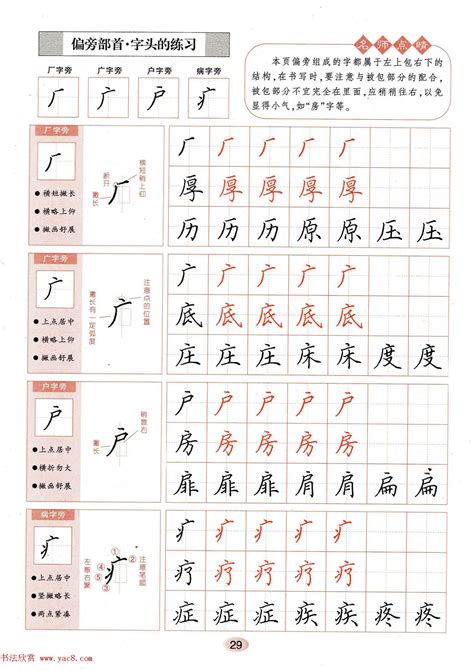 偏旁部首·字头的练习
厂字旁 广字旁 户字旁 病字旁
厂 广 户 疒
名师点睛
本页偏旁组成的字都属于左上包右下的
结构,在书写时,要注意与被包部分的配合,
被包部分不宜完全在里面,应稍稍往右,以免
显得小气,如“房”字等。
厂字旁
厂
●横短撇长
●横略上仰
●撇画舒展
横短稍上仰
断开
撇长
厂
厂 厂 厂 厂 厂
厚 厚 厚 厚 厚
历 历 历 原 原 压 压
广字旁
广
●上点居中
●横略上仰
●撇画舒展
注意点的位置
撇长有一定弧度
广
广 广 广 广 广
底 底 底 底 底
庄 庄 庄 床 床 度 度
户字旁
户
●上点居中
●横折勿大
●撇画舒展
稍靠右
撇长
户
户 户 户 户 户
房 房 房 房 房
扉 扉 扉 肩 肩 扁 扁
病字旁
疒
●上点居中
●竖撇略长
●两点紧凑
① ② ③ ④ ⑤
注意笔顺
左敞右聚
疒
疒 疒 疒 疒 疒
疗 疗 疗 疗 疗
症 症 症 疾 疾 疼 疼
29
书法欣赏 www.yac8.com